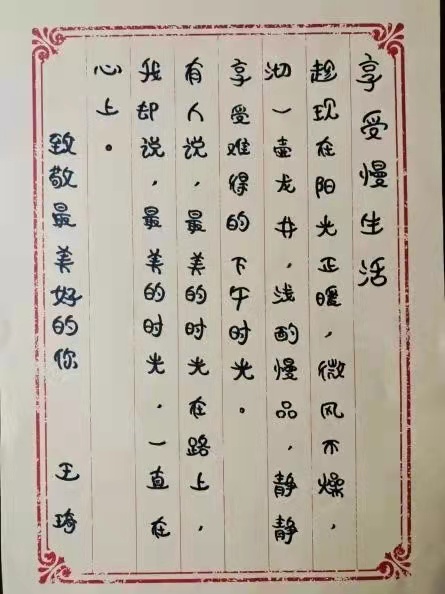 享受慢生活
趁现在阳光正暖，微风不燥，
沏一壶龙井，浅酌慢品，静静
享受难得的下午时光。
有人说，最美的时光在路上，
我却说，最美的时光，一直在
心上。
致敬最美好的你
王琦